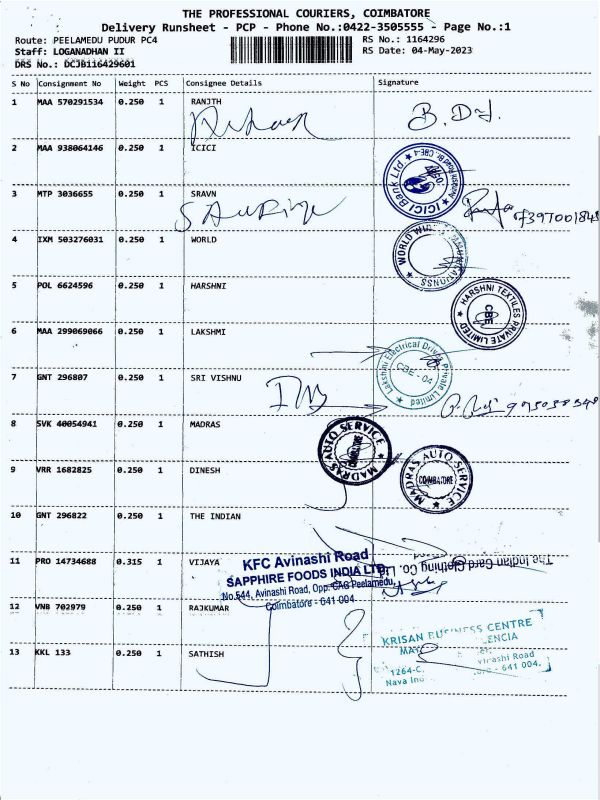 THE PROFESSIONAL COURIERS, COIMBATORE
Delivery Runsheet - PCP - Phone No.:0422-3505555 - Page No.:1
Route: PEELAMEDU PUDUR PC4 RS No.: 1164296
Staff: LOGANADHAN II RS Date: 04-May-2023
DRS No.: DCJB116429601
S No Consignment No Weight PCS Consignee Details Signature
1 MAA 570291534 0.250 1 RANJTH
2 MAA 938064146 0.250 1 ICICI
ICICI Bank Ltd. CBE-4
3 MTP 3036655 0.250 1 SRAVN
4 IXM 503276031 0.250 1 WORLD
WORLD WIDE
5 POL 6624596 0.250 1 HARSHNI
HARSHNI TEXTILES PRIVATE LIMITED CBE
6 MAA 299069066 0.250 1 LAKSHMI
Lakshmi Electrical Drives Private Limited CBE - 04
7 GNT 296807 0.250 1 SRI VISHNU
8 SVK 40054941 0.250 1 MADRAS
MADRAS AUTO SERVICE COIMBATORE
9 VRR 1682825 0.250 1 DINESH
MADRAS AUTO SERVICE COIMBATORE
10 GNT 296822 0.250 1 THE INDIAN
The Indian Card Clothing Co. Ltd
11 PRO 14734688 0.315 1 VIJAYA
KFC Avinashi Road
SAPPHIRE FOODS INDIA LTD.
No.544, Avinashi Road, Opp. CAG Peelamedu,
Coimbatore - 641 004.
12 VNB 702979 0.250 1 RAJKUMAR
KRISAN BUSINESS CENTRE
13 KKL 133 0.250 1 SATHISH
1264-C
Avinashi Road
641 004.
Nava